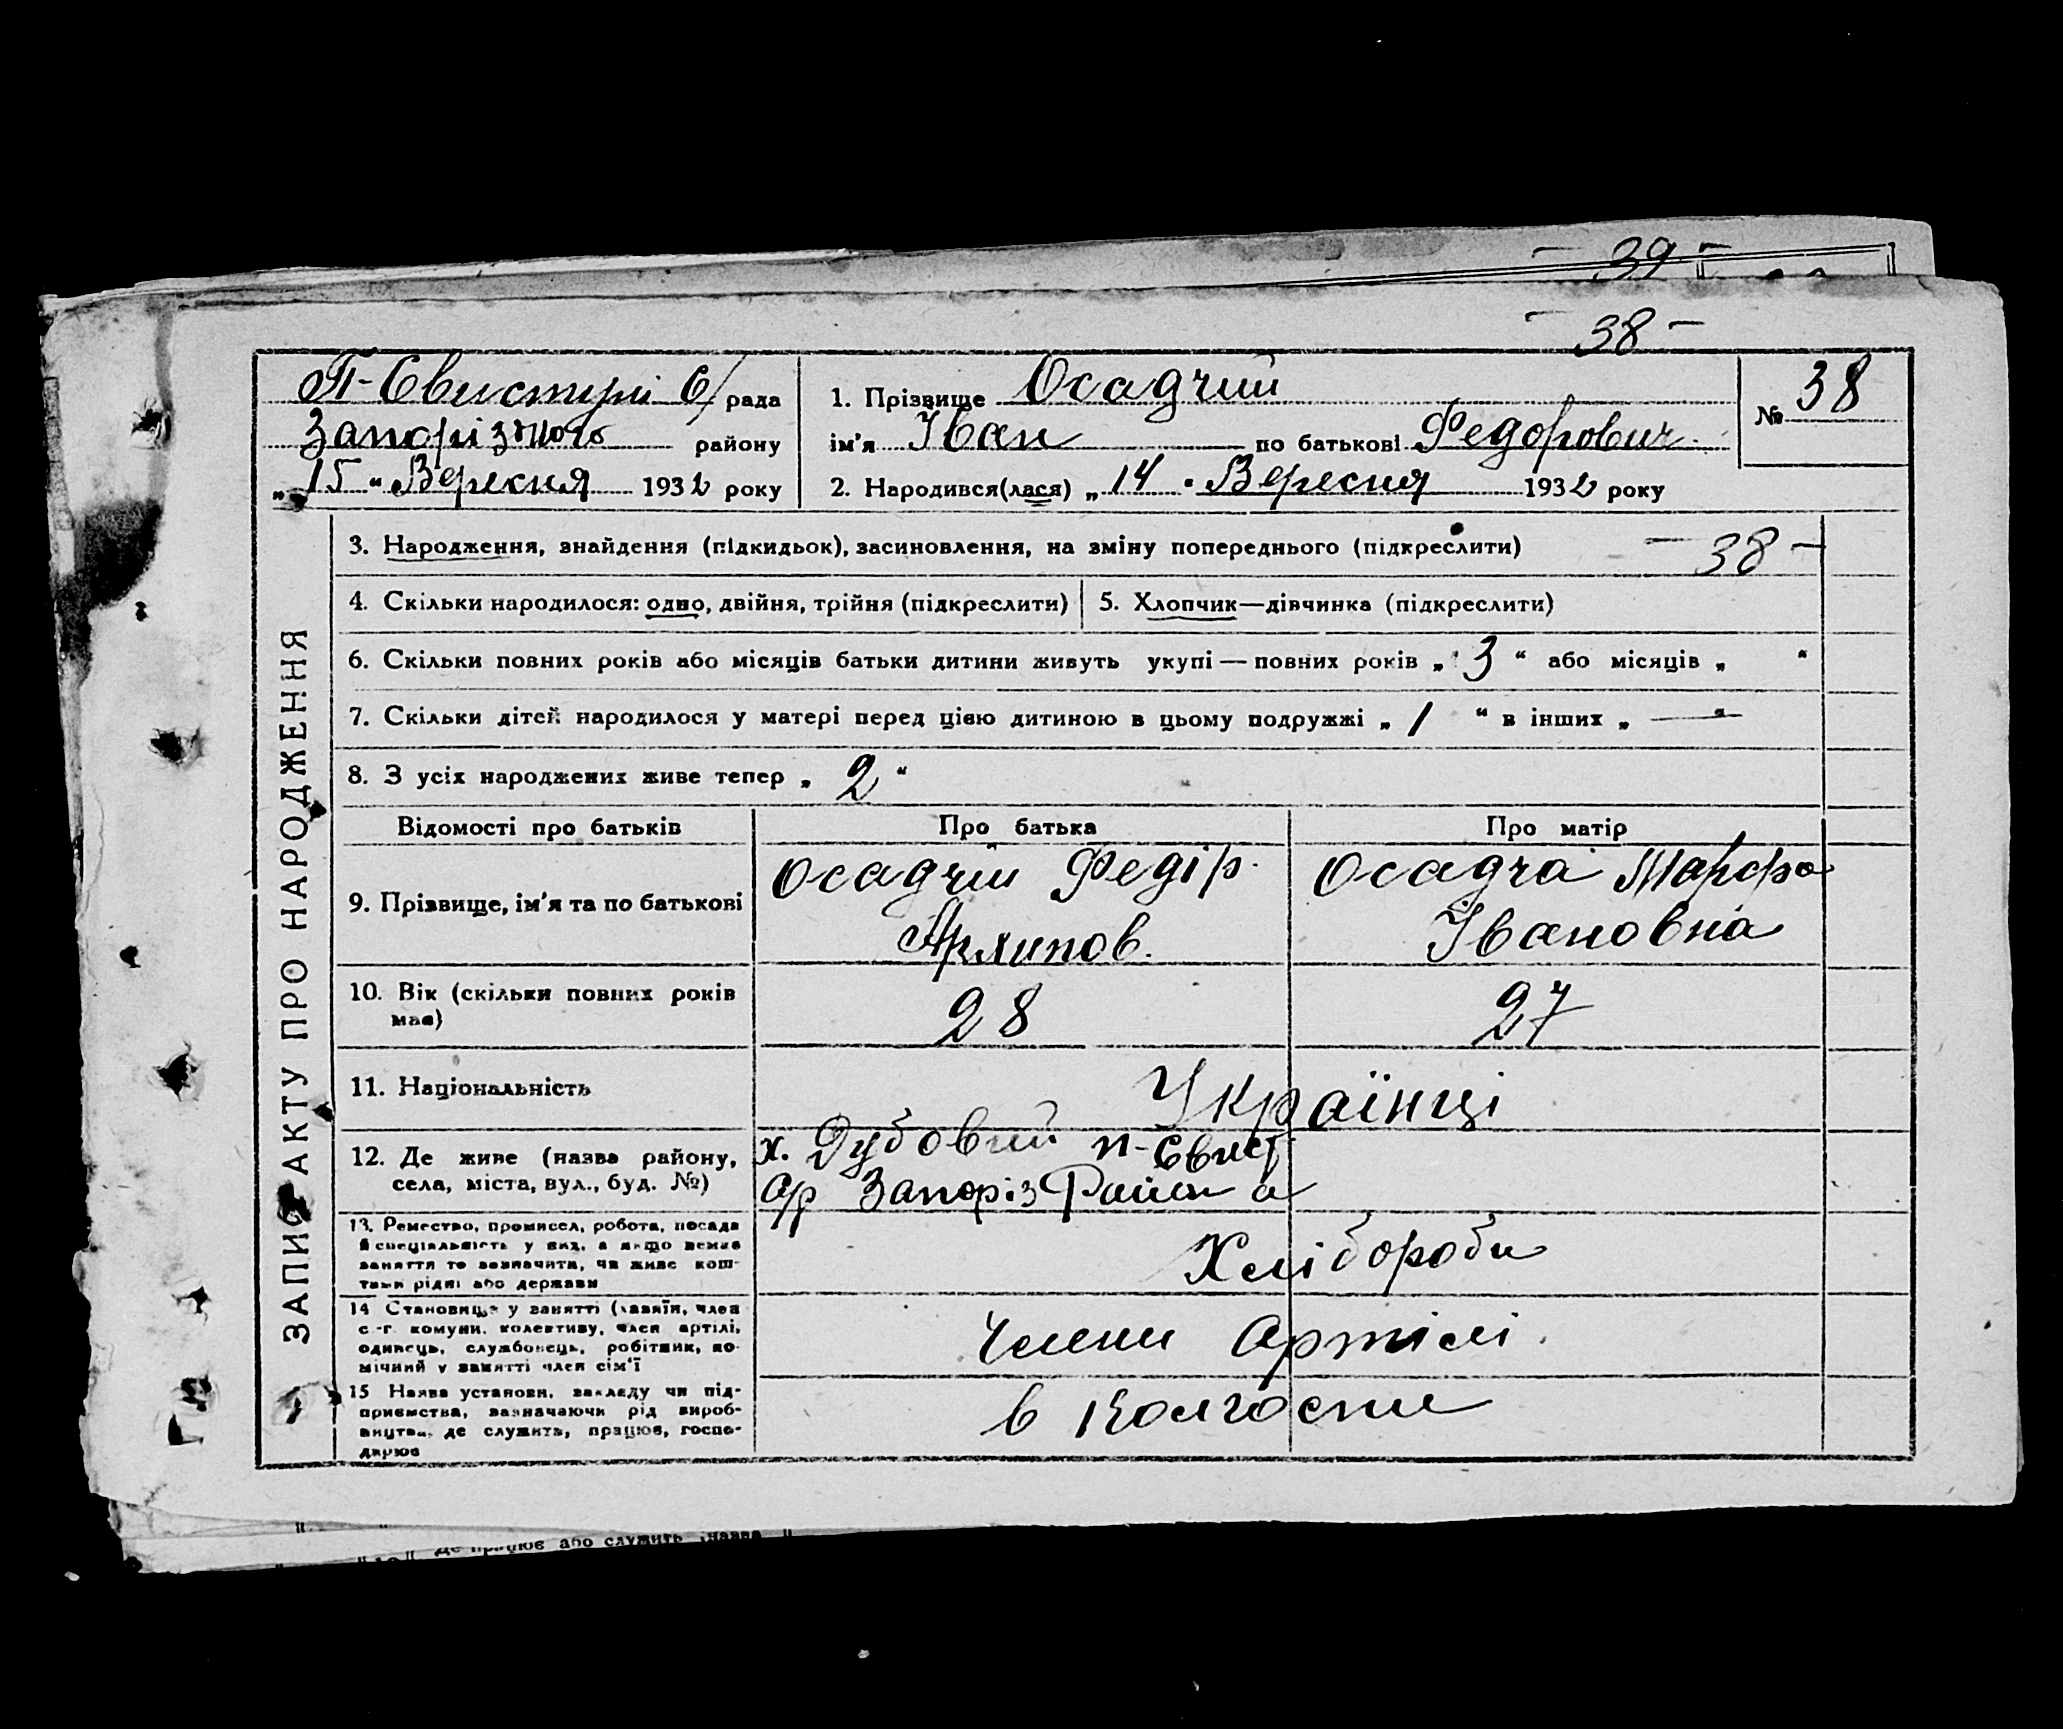 - 39 -
- 38 -
П-Свистуні С/рада
Запорізького району
„15“ Вересня 1932 року
1. Прізвище Осадчий
ім'я Іван по батькові Федорович
2. Народився(лася) „14“ Вересня 1932 року
№ 38
ЗАПИС АКТУ ПРО НАРОДЖЕННЯ
3. Народження, знайдення (підкидьок), засиновлення, на зміну попереднього (підкреслити) - 38 -
4. Скільки народилося: одно, двійня, трійня (підкреслити)
5. Хлопчик—дівчинка (підкреслити)
6. Скільки повних років або місяців батьки дитини живуть укупі — повних років „3“ або місяців „ “
7. Скільки дітей народилося у матері перед цією дитиною в цьому подружжі „1“ в інших „—“
8. З усіх народжених живе тепер „2“
Відомості про батьків Про батька Про матір
9. Прізвище, ім'я та по батькові
Осадчій Федір
Архипов.
Осадча Марфа
Івановна
10. Вік (скільки повних років
має)
28 27
11. Національність Українці
12. Де живе (назва району,
села, міста, вул., буд. №)
х. Дубовий п-Свист
с/р Запоріз Района
13. Ремество, промисел, робота, посада
й спеціяльність у них, а якщо немає
заняття то зазначити, чи живе кош-
тами рідні або держави
Хлібороби
14 Становище у занятті (хазяїн, член
с.-г. комуни, колективу, член артілі,
одинець, службовець, робітник, по-
мічний у занятті член сім'ї
Члени Артілі.
15 Назва установи, закладу чи під-
приємства, зазначаючи рід вироб-
ництва, де служить, працює, госпо-
дарює
в колгоспи
Де працює або служить назва